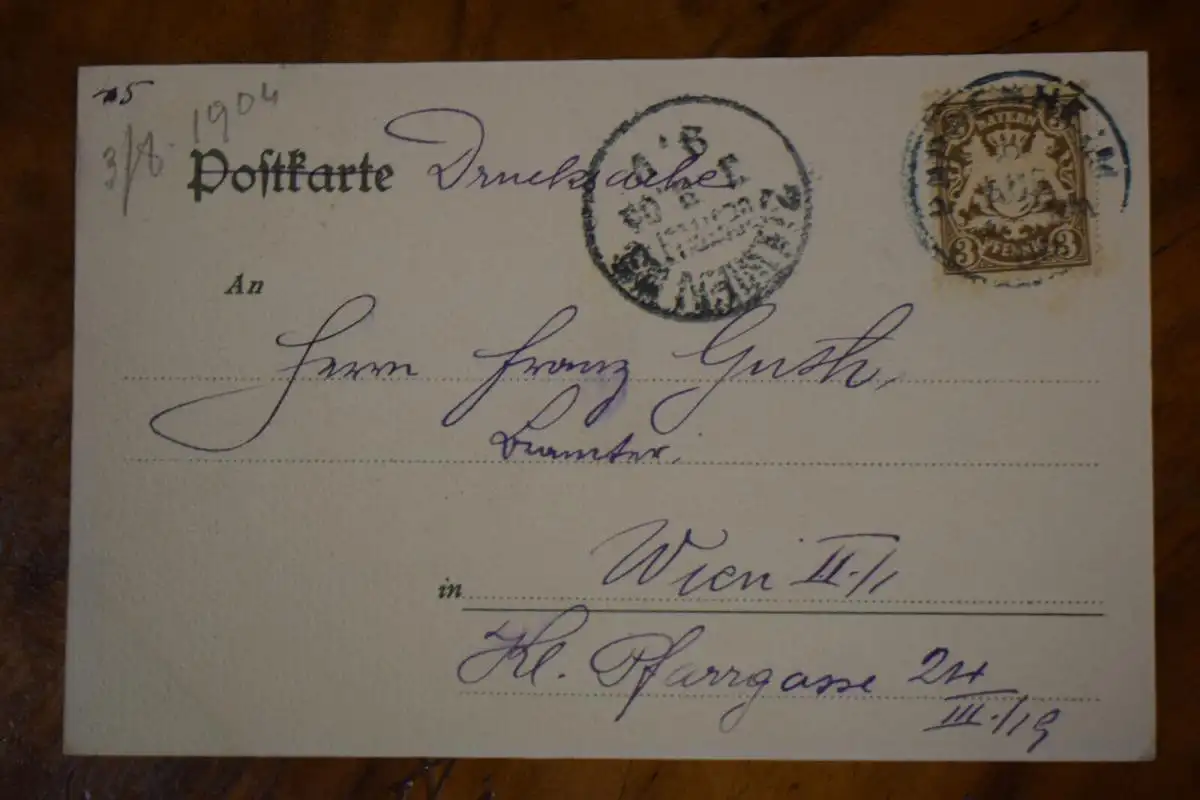 3/8. 1904
Postkarte Drucksache
BAYERN
3 PFENNIG 3
WIEN
An
Herrn Franz Guth,
Beamter.
in Wien II./1
Kl. Pfarrgasse 24
III./19